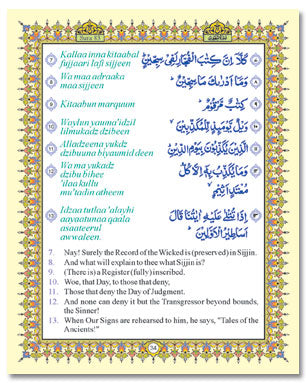 Sura: 83
7 Kallaa inna kitaabal
fujjaari lafii sijjeen
كَلَّآ إِنَّ كِتَٰبَ الْفُجَّارِ لَفِي سِجِّينٍ
8 Wa maa adraaka
maa sijjeen
وَمَآ أَدْرَىٰكَ مَا سِجِّينٌ
9 Kitaabun marquum
كِتَٰبٌ مَّرْقُومٌ
10 Waylun yauma'idzil
lilmukadz dzibeen
وَيْلٌ يَوْمَئِذٍ لِّلْمُكَذِّبِينَ
11 Alladzeena yukadz
dzibuuna biyaumid deen
الَّذِينَ يُكَذِّبُونَ بِيَوْمِ الدِّينِ
12 Wa ma yukadz
dzibu bihee
'ilaa kullu
mu'tadin atheem
وَمَا يُكَذِّبُ بِهِۦٓ إِلَّا كُلُّ
مُعْتَدٍ أَثِيمٍ
13 Idzaa tutlaa 'alayhi
aayaatunaa qaala
asaateerul
awwaleen
إِذَا تُتْلَىٰ عَلَيْهِ ءَايَٰتُنَا قَالَ
أَسَٰطِيرُ الْأَوَّلِينَ
7. Nay! Surely the Record of the Wicked is (preserved) in Sijjin.
8. And what will explain to thee what Sijjin is?
9. (There is) a Register (fully) inscribed.
10. Woe, that Day, to those that deny,
11. Those that deny the Day of Judgment.
12. And none can deny it but the Transgressor beyond bounds,
the Sinner!
13. When Our Signs are rehearsed to him, he says, "Tales of the
Ancients!"
34